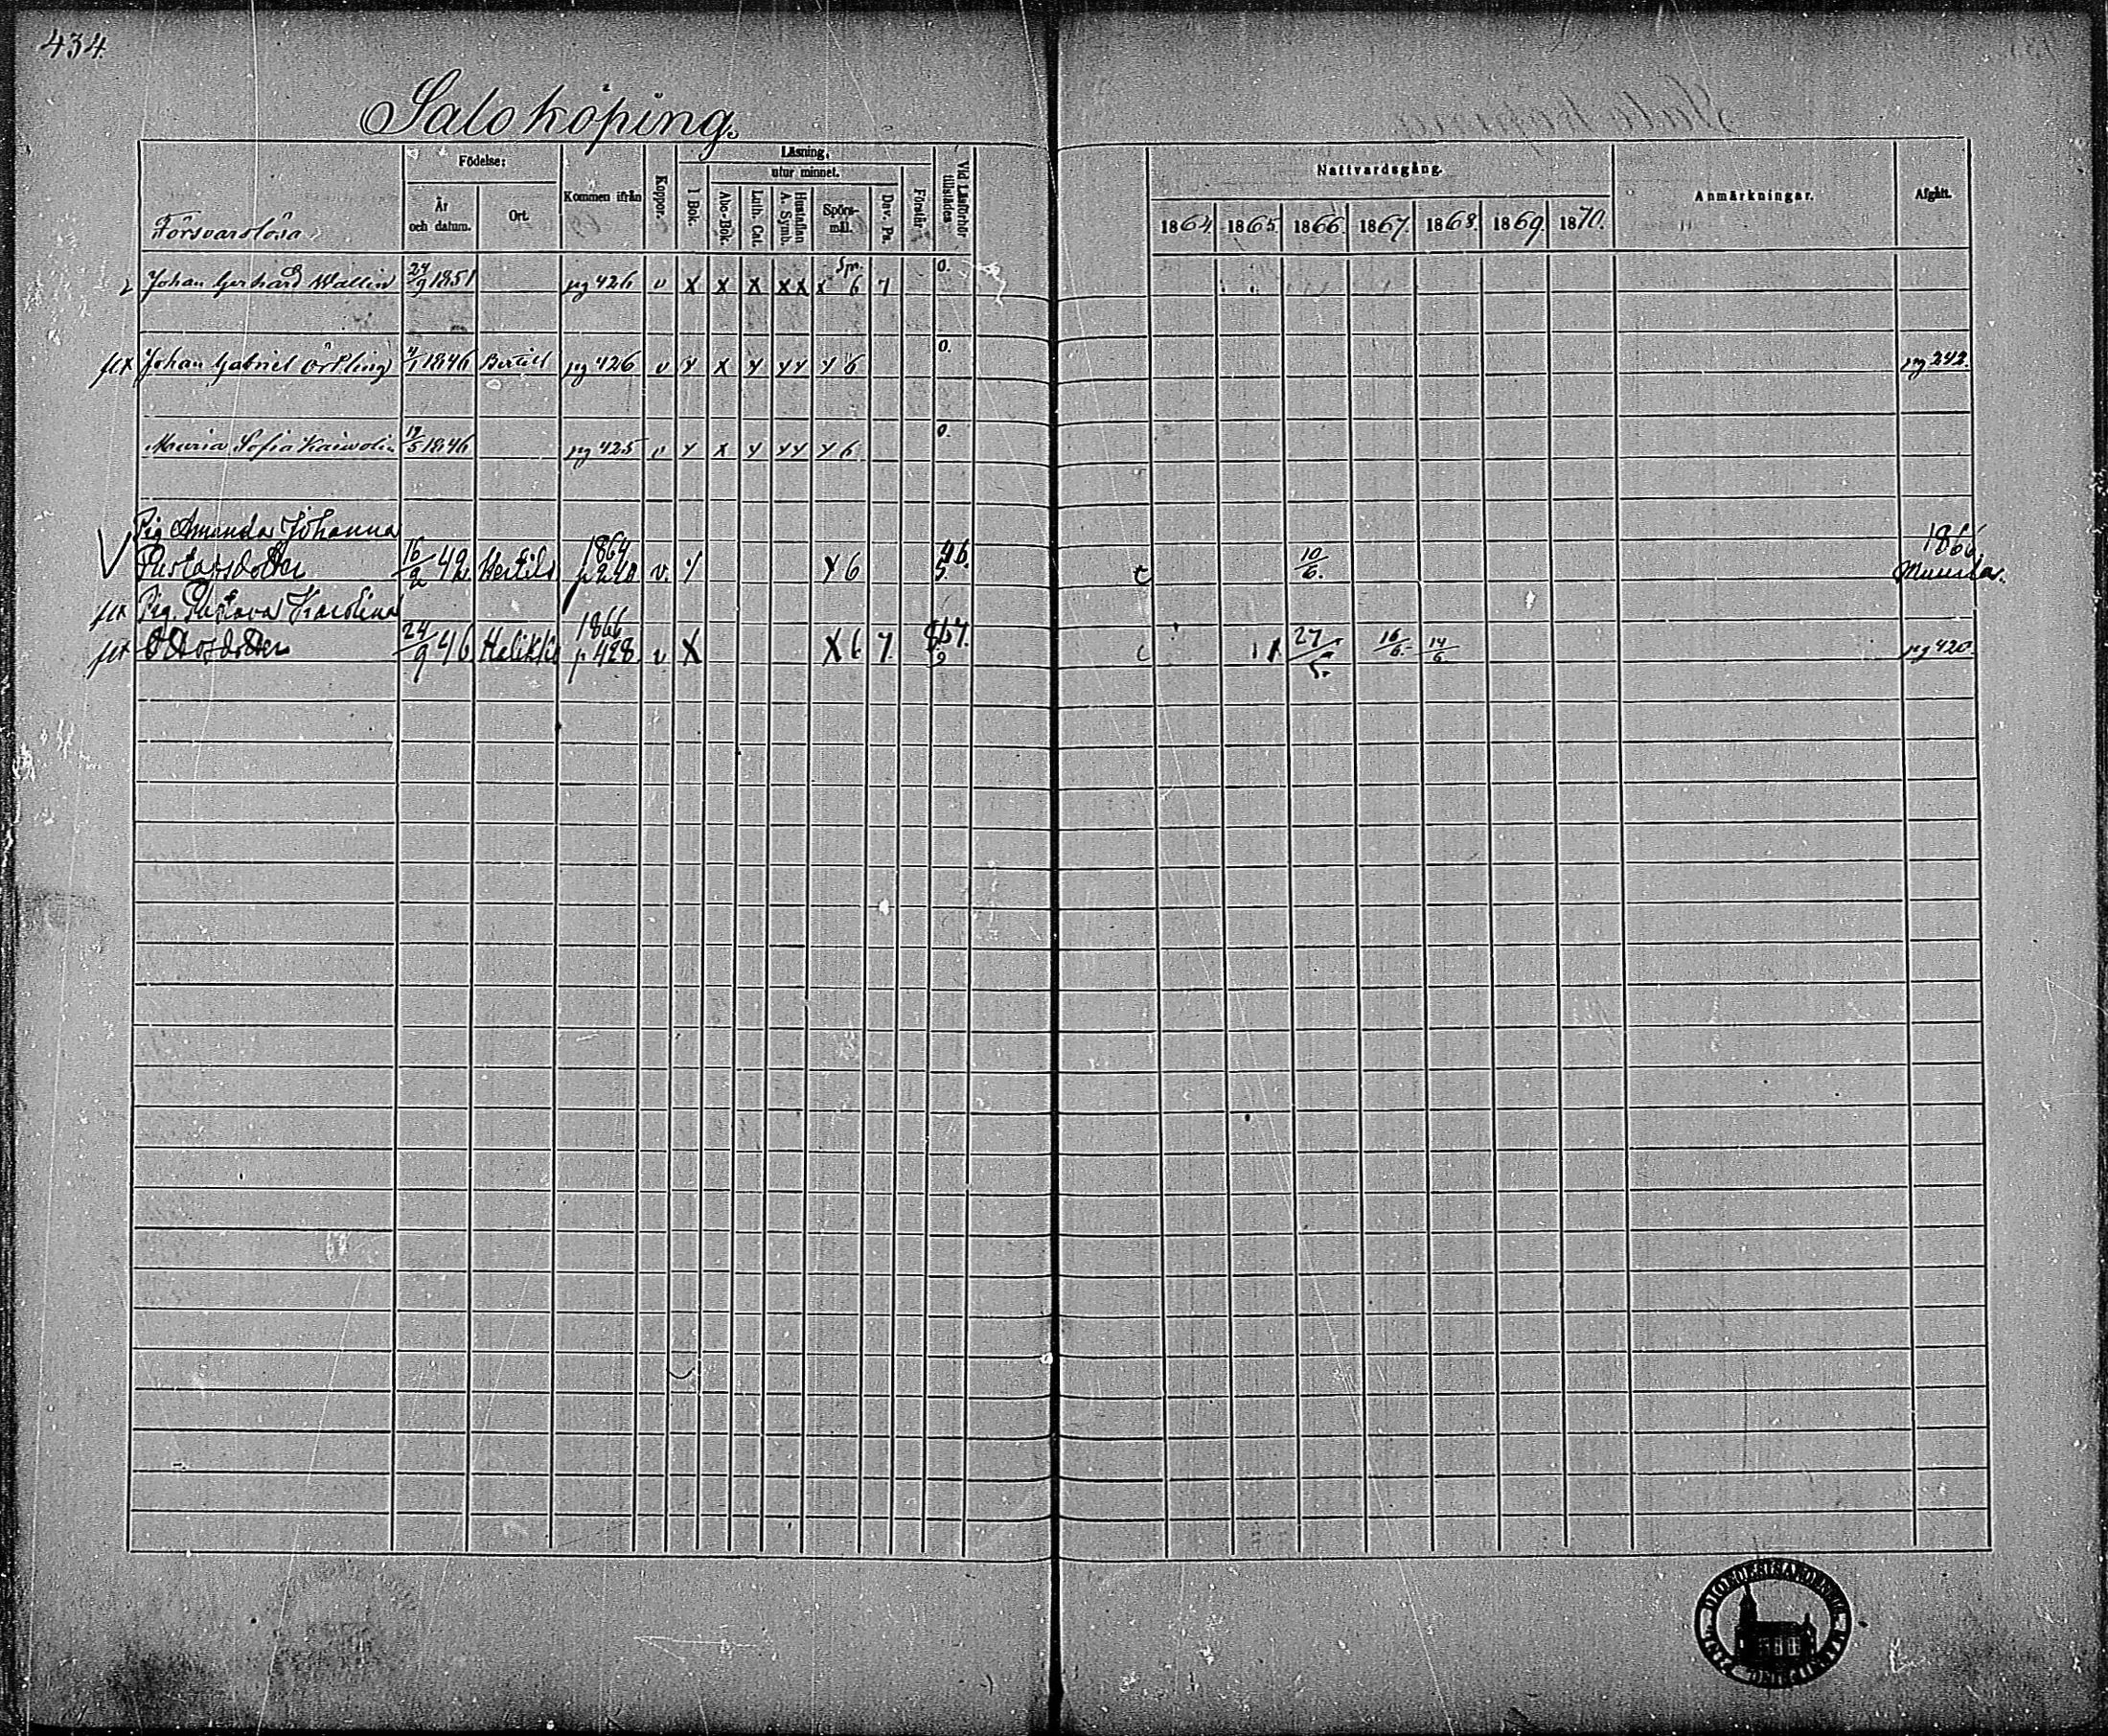 434.
Salo köping.
Försvarslösa
Födelse:
År och datum.
Ort.
Kommen ifrån
Koppor.
Läsning,
utur minnet.
I Bok.
Abc-Bok.
Luth. Cat.
Hustaflan A. Symb.
Spörsmål.
Dav. Ps.
Förstår
Vid Läsförhör tillstädes
Nattvardsgång.
1864. 1865. 1866. 1867. 1868. 1869. 1870.
Anmärkningar.
Afgått.
Johan Gerhard Wallin 24/9 1851 pg 426 v x x x x x x 6 7 0.
Spr.
flt Johan Gabriel Örtling 4/1 1846 Bertill pg 426 v x x x x x x 6 0. pg 242.
Maria Sofia Kaiwolin 19/5 1846 pg 425 v x x x x x x 6 0.
Pig. Amanda Johanna 1864 1866
Gustafsdotter 16/2 42 p 240 v. x x 6 10/6.
flt Pig. Gustava Karolina 1866
flt Ottosdotter 24/9 46 Halikko p 428 v x x 6 7. 27/5. 16/6. 14/6. pg 420.